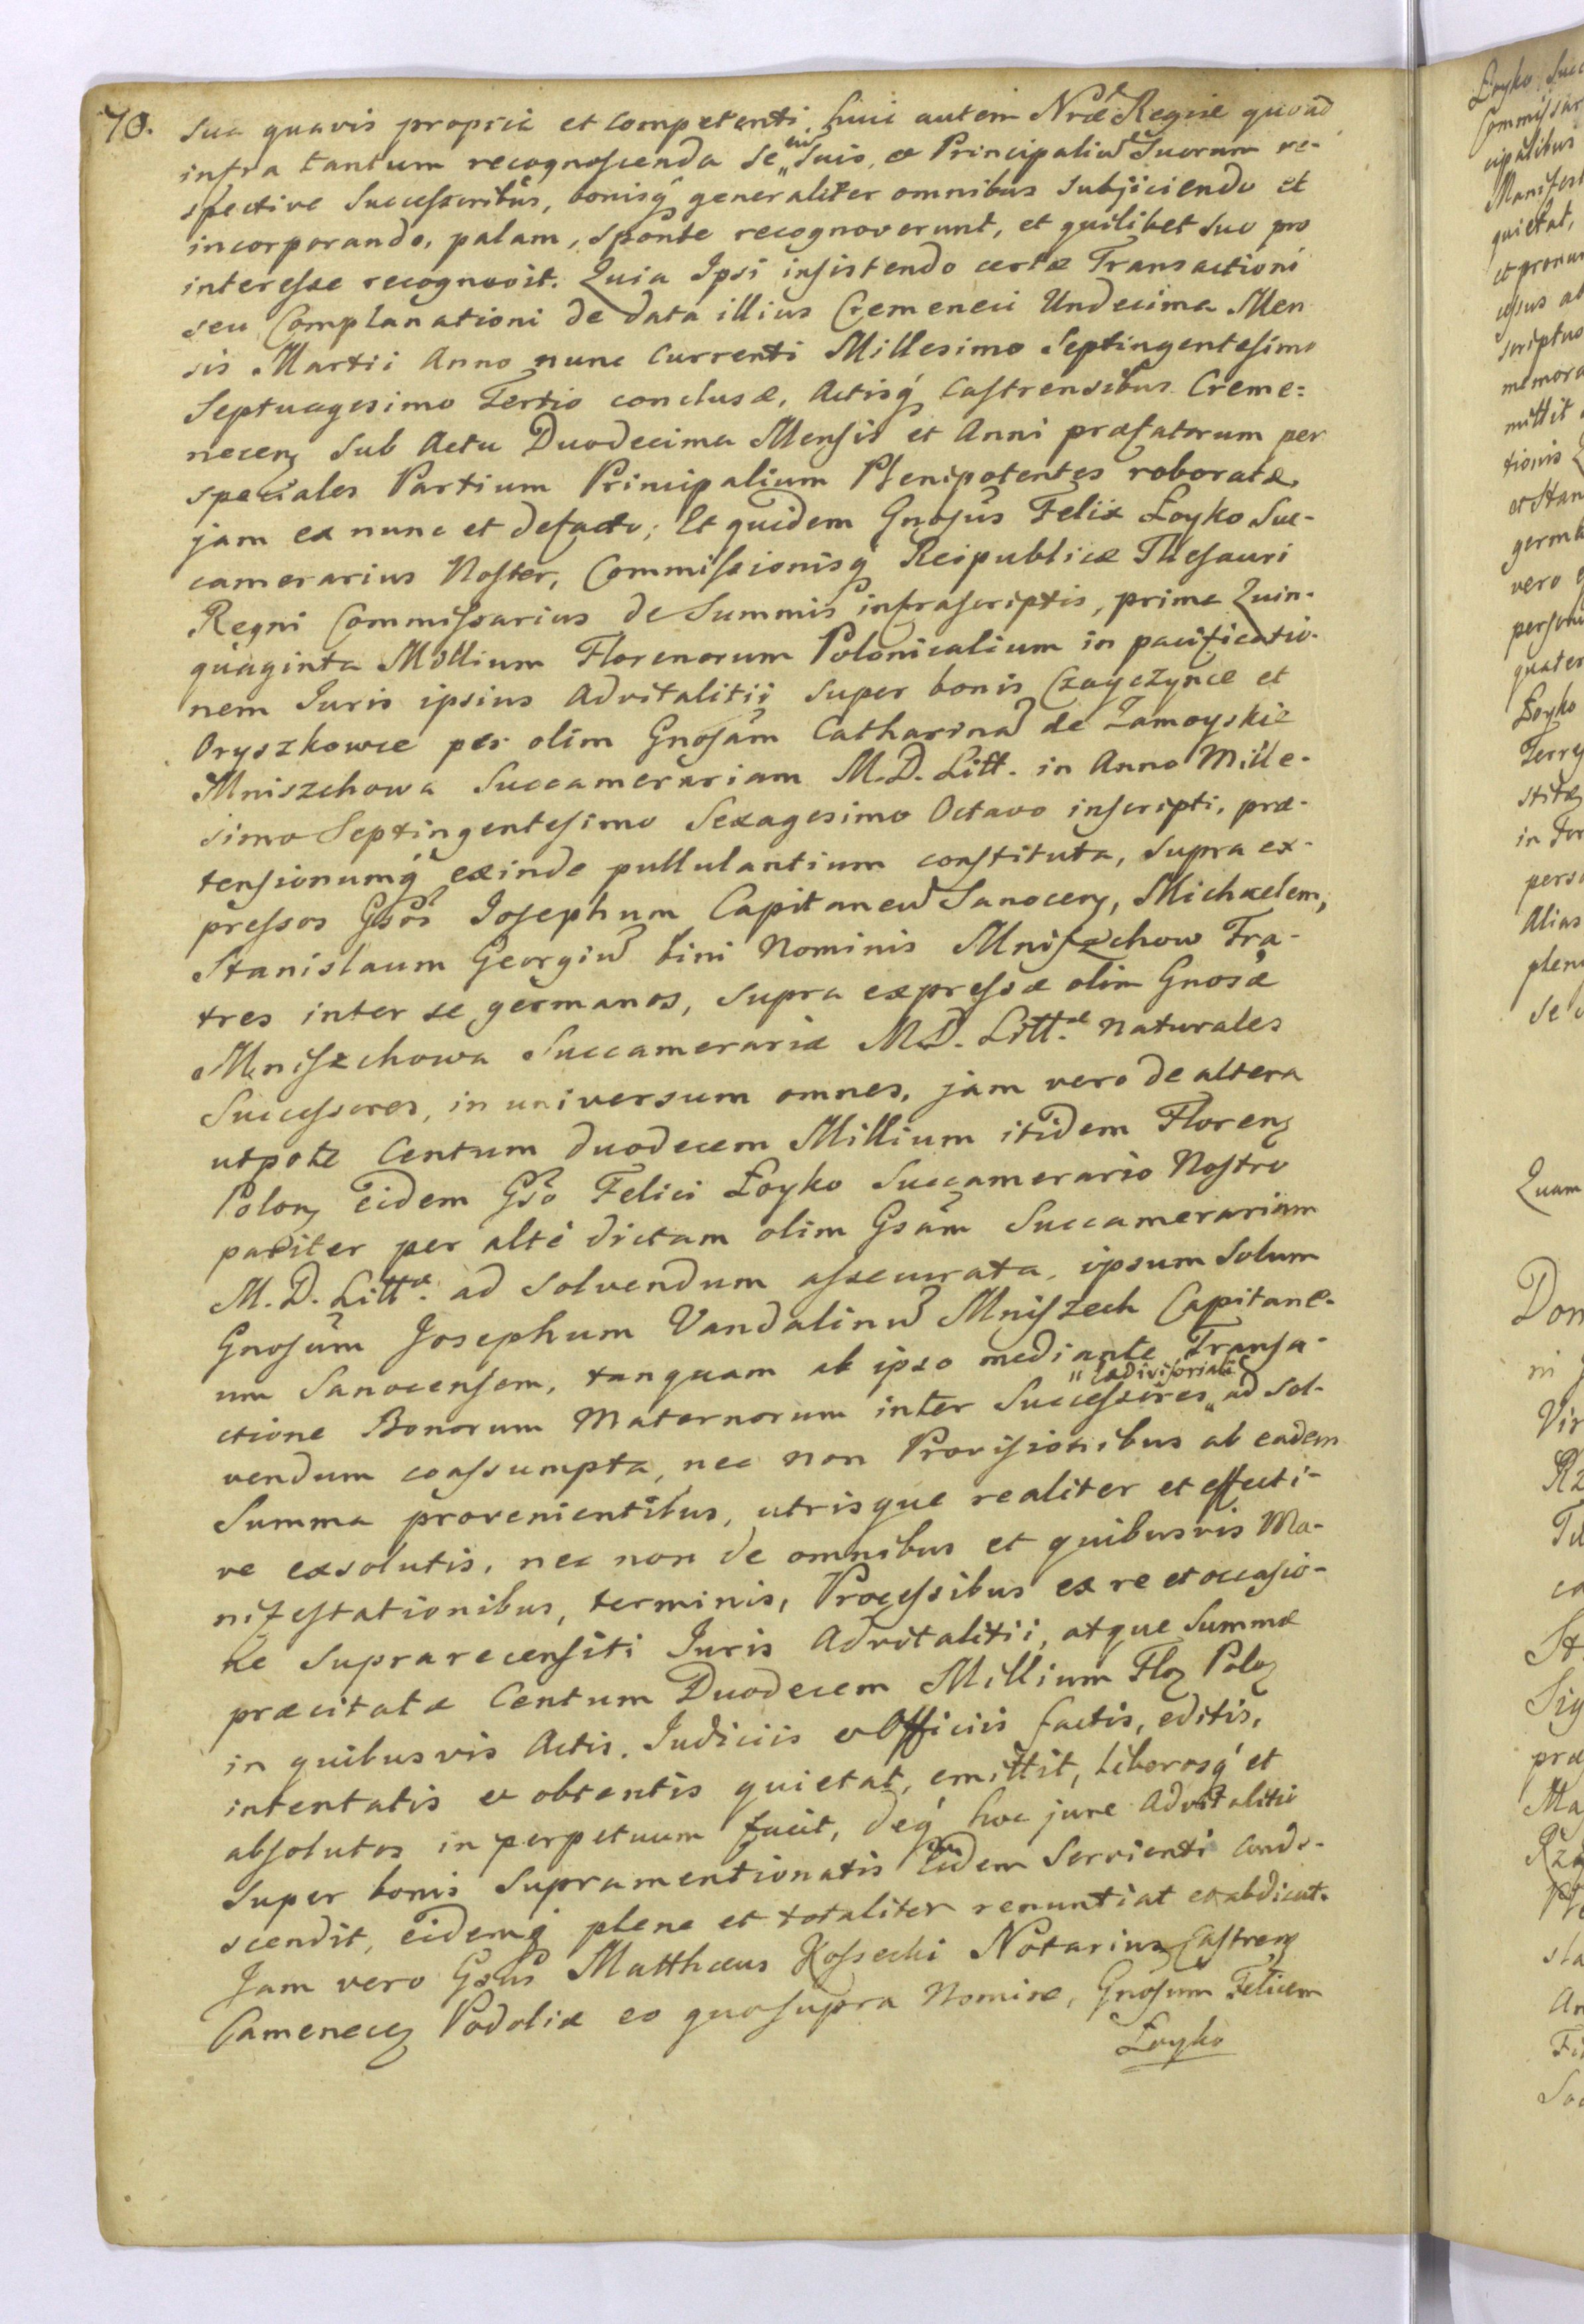 70.
sua quavis propria et competenti, huic autem Nrae Regiae quoad
infra tantum recognoscenda se „cū Suis, et Principaliū Suorum re-
spective Successoribūs, bonisq́ generaliter omnibus subjiciendo et
incorporando, palam, sponte recognoverunt, et quilibet suo pro
interesse recognovit. Quia Ipsi insistendo certae Transactioni
seu Complanationi de data illius Cremeneci Undecima Men
sis Martii Anno nunc Currenti Millesimo Septingentesimo
Septuagesimo Tertio conclusae, Actisq́ Castrensibus Creme=
necenȝ sub Actu Duodecima Mensis et Anni praefatorum per
speciales Partium Principalium Plenipotentes roboratae,
jam ex nunc et defacto; Et quidem Gnosūs Felix Łoyko Suc-
camerarius Noster, Commissionisq́ Reipublicae Thesauri
Regni Commissarius de Summis infrascriptis, prima Quin-
quaginta Millium Florenorum Polonicalium in pacificatio-
nem Juris ipsius Advitalitii super bonis Czayczynce et
Oryszkowce per olim Gnosām Catharinā de Zamoyskie
Mniszchowa Succamerariam M. D. Litt. in Anno Mille-
simo Septingentesimo Sexagesimo Octavo inscripti, prae-
tensionumq́ exinde pullulantium constituta, supra ex-
pressos Gsōs Josephum Capitaneū Sanocenȝ, Michaelem,
Stanislaum Georgiū bini Nominis Mniszchow Fra-
tres inter se germanos, supra expressae olim Gnosae
Mniszchowa Succamerariae M.D. Littae. naturales
Successores, in universum omnes, jam vero de altera
utpote Centum duodecem Millium itidem Florenȝ
Polonȝ eidem Gsō Felici Łoyko Succamerario Nostro
pariter per alté dictam olim Gsām Succamerariam
M. D. Littae. ad solvendum assecurata, ipsum solum
Gnosūm Josephum Vandalinū Mniszech Capitane-
um Sanocensem, tanquam ab ipso mediante Transa-
ctione Bonorum Maternorum inter Successores „ Exdivisoriali „ ad sol-
vendum coassumpta, nec non Provisionibus ab eadem
Summa provenientibus, utrisque realiter et effecti-
ve exsolutis, nec non de omnibus et quibusvis Ma-
nifestationibus, terminis, Processibus ex re et occasio-
ne suprarecensiti Juris Advitalitii, atque Summae
praecitatae Centum Duodecem Millium Floȝ Poloȝ
in quibusvis Actis, Judiciis et Officiis factis, editis,
intentatis et obtentis quietat, emittit, liberosq́ et
absolutos in perpetuum facit, deq́ hoc jure Advitalitio
super bonis supramentionatis Eidem servienti conde-
scendit, eidemq́ plene et totaliter renuntiat et abdicat.
Jam vero Gsūs Matthaeus Kossecki Notarius Castrenȝ
Camenecȝ Podoliae eo quosupra Nomine, Gnosum Felicem
Łoyko